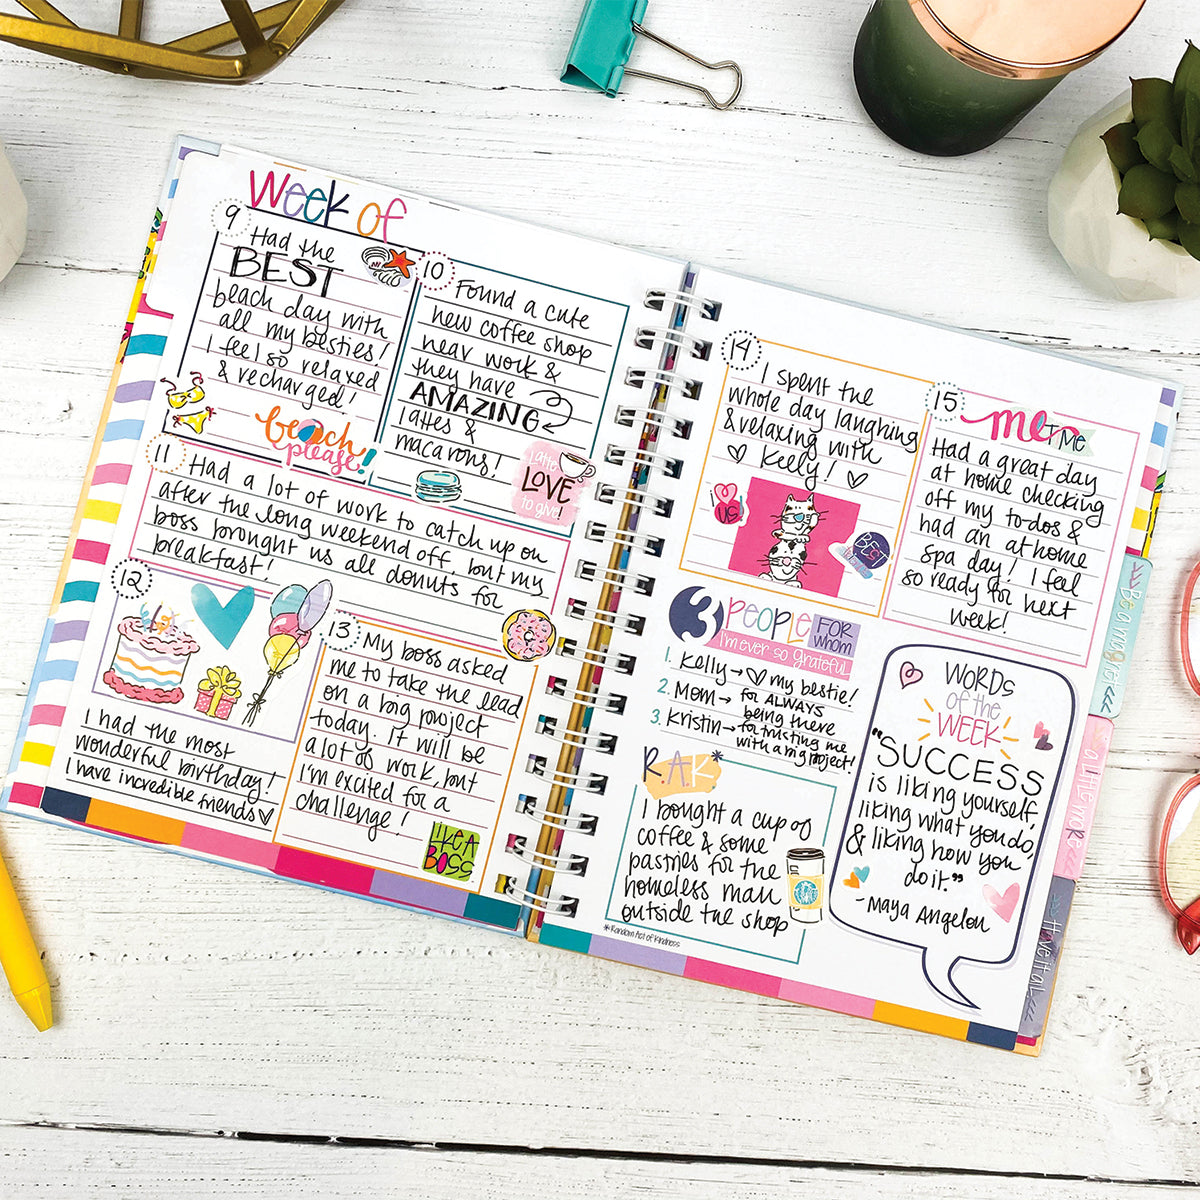 Week of
9
Had the
BEST
beach day with
all my besties!
I feel so relaxed
& recharged!
beach
please!
10
Found a cute
new coffee shop
near work &
they have
AMAZING
lattes &
macarons!
latte
LOVE
to give!
11
Had a lot of work to catch up on
after the long weekend off, but my
boss brought us all donuts for
breakfast!
12
I had the most
wonderful birthday!
I have incredible friends
13
My boss asked
me to take the lead
on a big project
today. It will be
a lot of work, but
I'm excited for a
challenge!
LIKE A
BOSS
14
I spent the
whole day laughing
& relaxing with
Kelly!
US!
BEST
15
me TIME
Had a great day
at home checking
off my to-dos &
had an at home
spa day! I feel
so ready for next
week!
3 PEOPLE FOR WHOM
I'm ever so grateful
1. Kelly → my bestie!
2. Mom → for ALWAYS
being there
3. Kristin → for trusting me
with a big project!
R.A.K*
I bought a cup of
coffee & some
pastries for the
homeless man
outside the shop
*Random Act of Kindness
WORDS
of the
WEEK
"SUCCESS
is liking yourself,
liking what you do,
& liking how you
do it."
- Maya Angelou
>>> Be amazed <<<
a little more <<<
>>> Have it all <<<